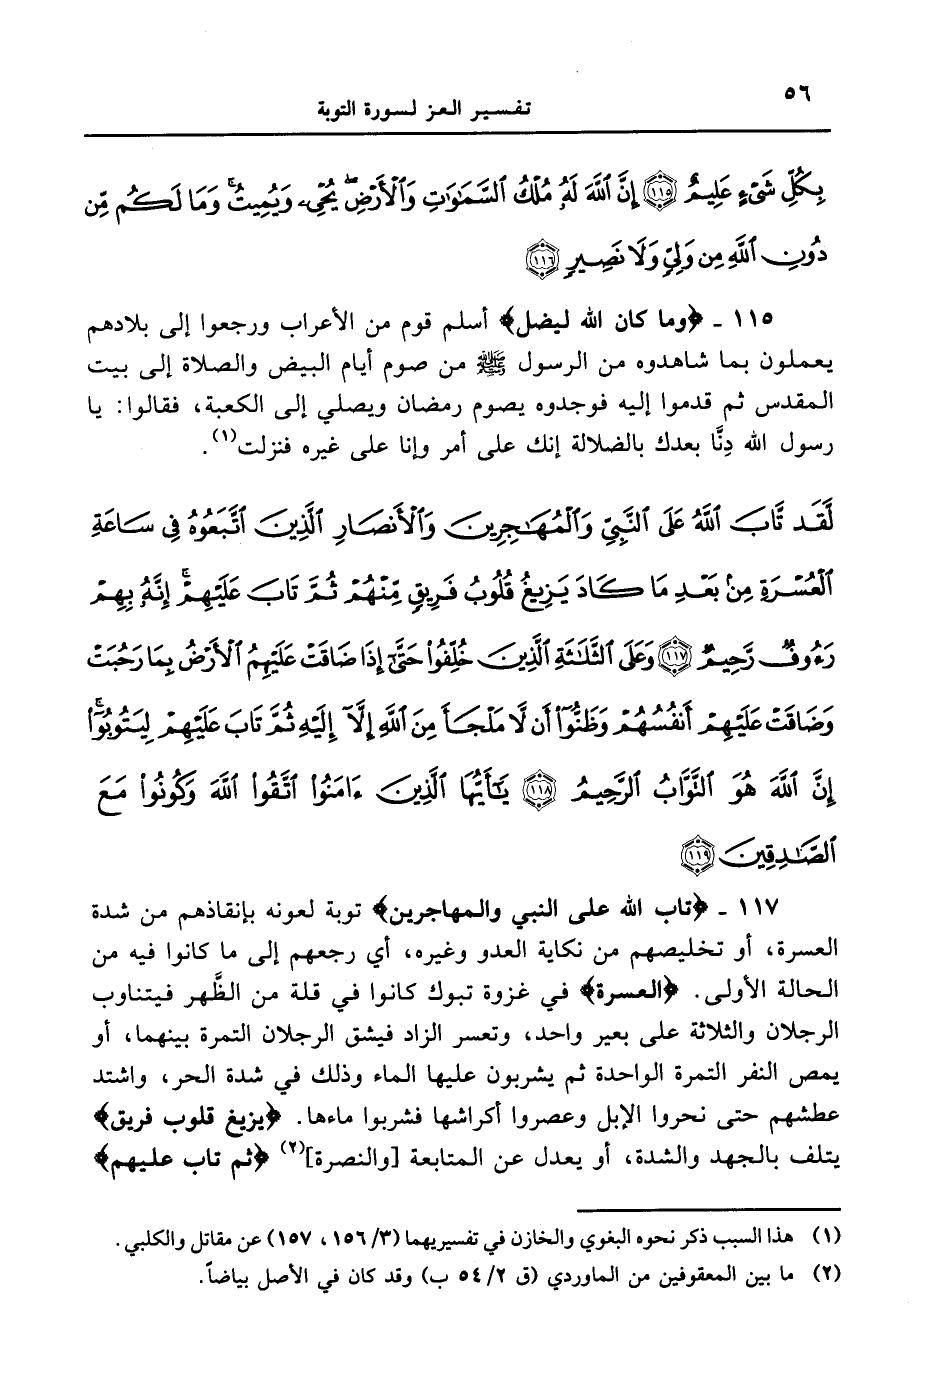 ٥٦
تفسير العز لسورة التوبة
بِكُلِّ شَىْءٍ عَلِيمٌ ﴿١١٥﴾ إِنَّ ٱللَّهَ لَهُۥ مُلْكُ ٱلسَّمَٰوَٰتِ وَٱلْأَرْضِۖ يُحْىِۦ وَيُمِيتُۚ وَمَا لَكُم مِّن
دُونِ ٱللَّهِ مِن وَلِىٍّ وَلَا نَصِيرٍ ﴿١١٦﴾
١١٥ ـ ﴿وما كان الله ليضل﴾ أسلم قوم من الأعراب ورجعوا إلى بلادهم
يعملون بما شاهدوه من الرسول ﷺ من صوم أيام البيض والصلاة إلى بيت
المقدس ثم قدموا إليه فوجدوه يصوم رمضان ويصلي إلى الكعبة، فقالوا: يا
رسول الله دِنَّا بعدك بالضلالة إنك على أمر وإنا على غيره فنزلت(١).
لَّقَد تَّابَ ٱللَّهُ عَلَى ٱلنَّبِىِّ وَٱلْمُهَٰجِرِينَ وَٱلْأَنصَارِ ٱلَّذِينَ ٱتَّبَعُوهُ فِى سَاعَةِ
ٱلْعُسْرَةِ مِنۢ بَعْدِ مَا كَادَ يَزِيغُ قُلُوبُ فَرِيقٍ مِّنْهُمْ ثُمَّ تَابَ عَلَيْهِمْۚ إِنَّهُۥ بِهِمْ
رَءُوفٌ رَّحِيمٌ ﴿١١٧﴾ وَعَلَى ٱلثَّلَٰثَةِ ٱلَّذِينَ خُلِّفُوا۟ حَتَّىٰٓ إِذَا ضَاقَتْ عَلَيْهِمُ ٱلْأَرْضُ بِمَا رَحُبَتْ
وَضَاقَتْ عَلَيْهِمْ أَنفُسُهُمْ وَظَنُّوٓا۟ أَن لَّا مَلْجَأَ مِنَ ٱللَّهِ إِلَّآ إِلَيْهِ ثُمَّ تَابَ عَلَيْهِمْ لِيَتُوبُوٓا۟ۚ
إِنَّ ٱللَّهَ هُوَ ٱلتَّوَّابُ ٱلرَّحِيمُ ﴿١١٨﴾ يَٰٓأَيُّهَا ٱلَّذِينَ ءَامَنُوا۟ ٱتَّقُوا۟ ٱللَّهَ وَكُونُوا۟ مَعَ
ٱلصَّٰدِقِينَ ﴿١١٩﴾
١١٧ ـ ﴿تاب الله على النبي والمهاجرين﴾ توبة لعونه بإنقاذهم من شدة
العسرة، أو تخليصهم من نكاية العدو وغيره، أي رجعهم إلى ما كانوا فيه من
الحالة الأولى. ﴿العسرة﴾ في غزوة تبوك كانوا في قلة من الظَّهر فيتناوب
الرجلان والثلاثة على بعير واحد، وتعسر الزاد فيشق الرجلان التمرة بينهما، أو
يمص النفر التمرة الواحدة ثم يشربون عليها الماء وذلك في شدة الحر، واشتد
عطشهم حتى نحروا الإبل وعصروا أكراشها فشربوا ماءها. ﴿يزيغ قلوب فريق﴾
يتلف بالجهد والشدة، أو يعدل عن المتابعة [والنصرة](٢) ﴿ثم تاب عليهم﴾
(١) هذا السبب ذكر نحوه البغوي والخازن في تفسيريهما (٣/١٥٦، ١٥٧) عن مقاتل والكلبي.
(٢) ما بين المعقوفين من الماوردي (ق ٢/٥٤ ب) وقد كان في الأصل بياضاً.